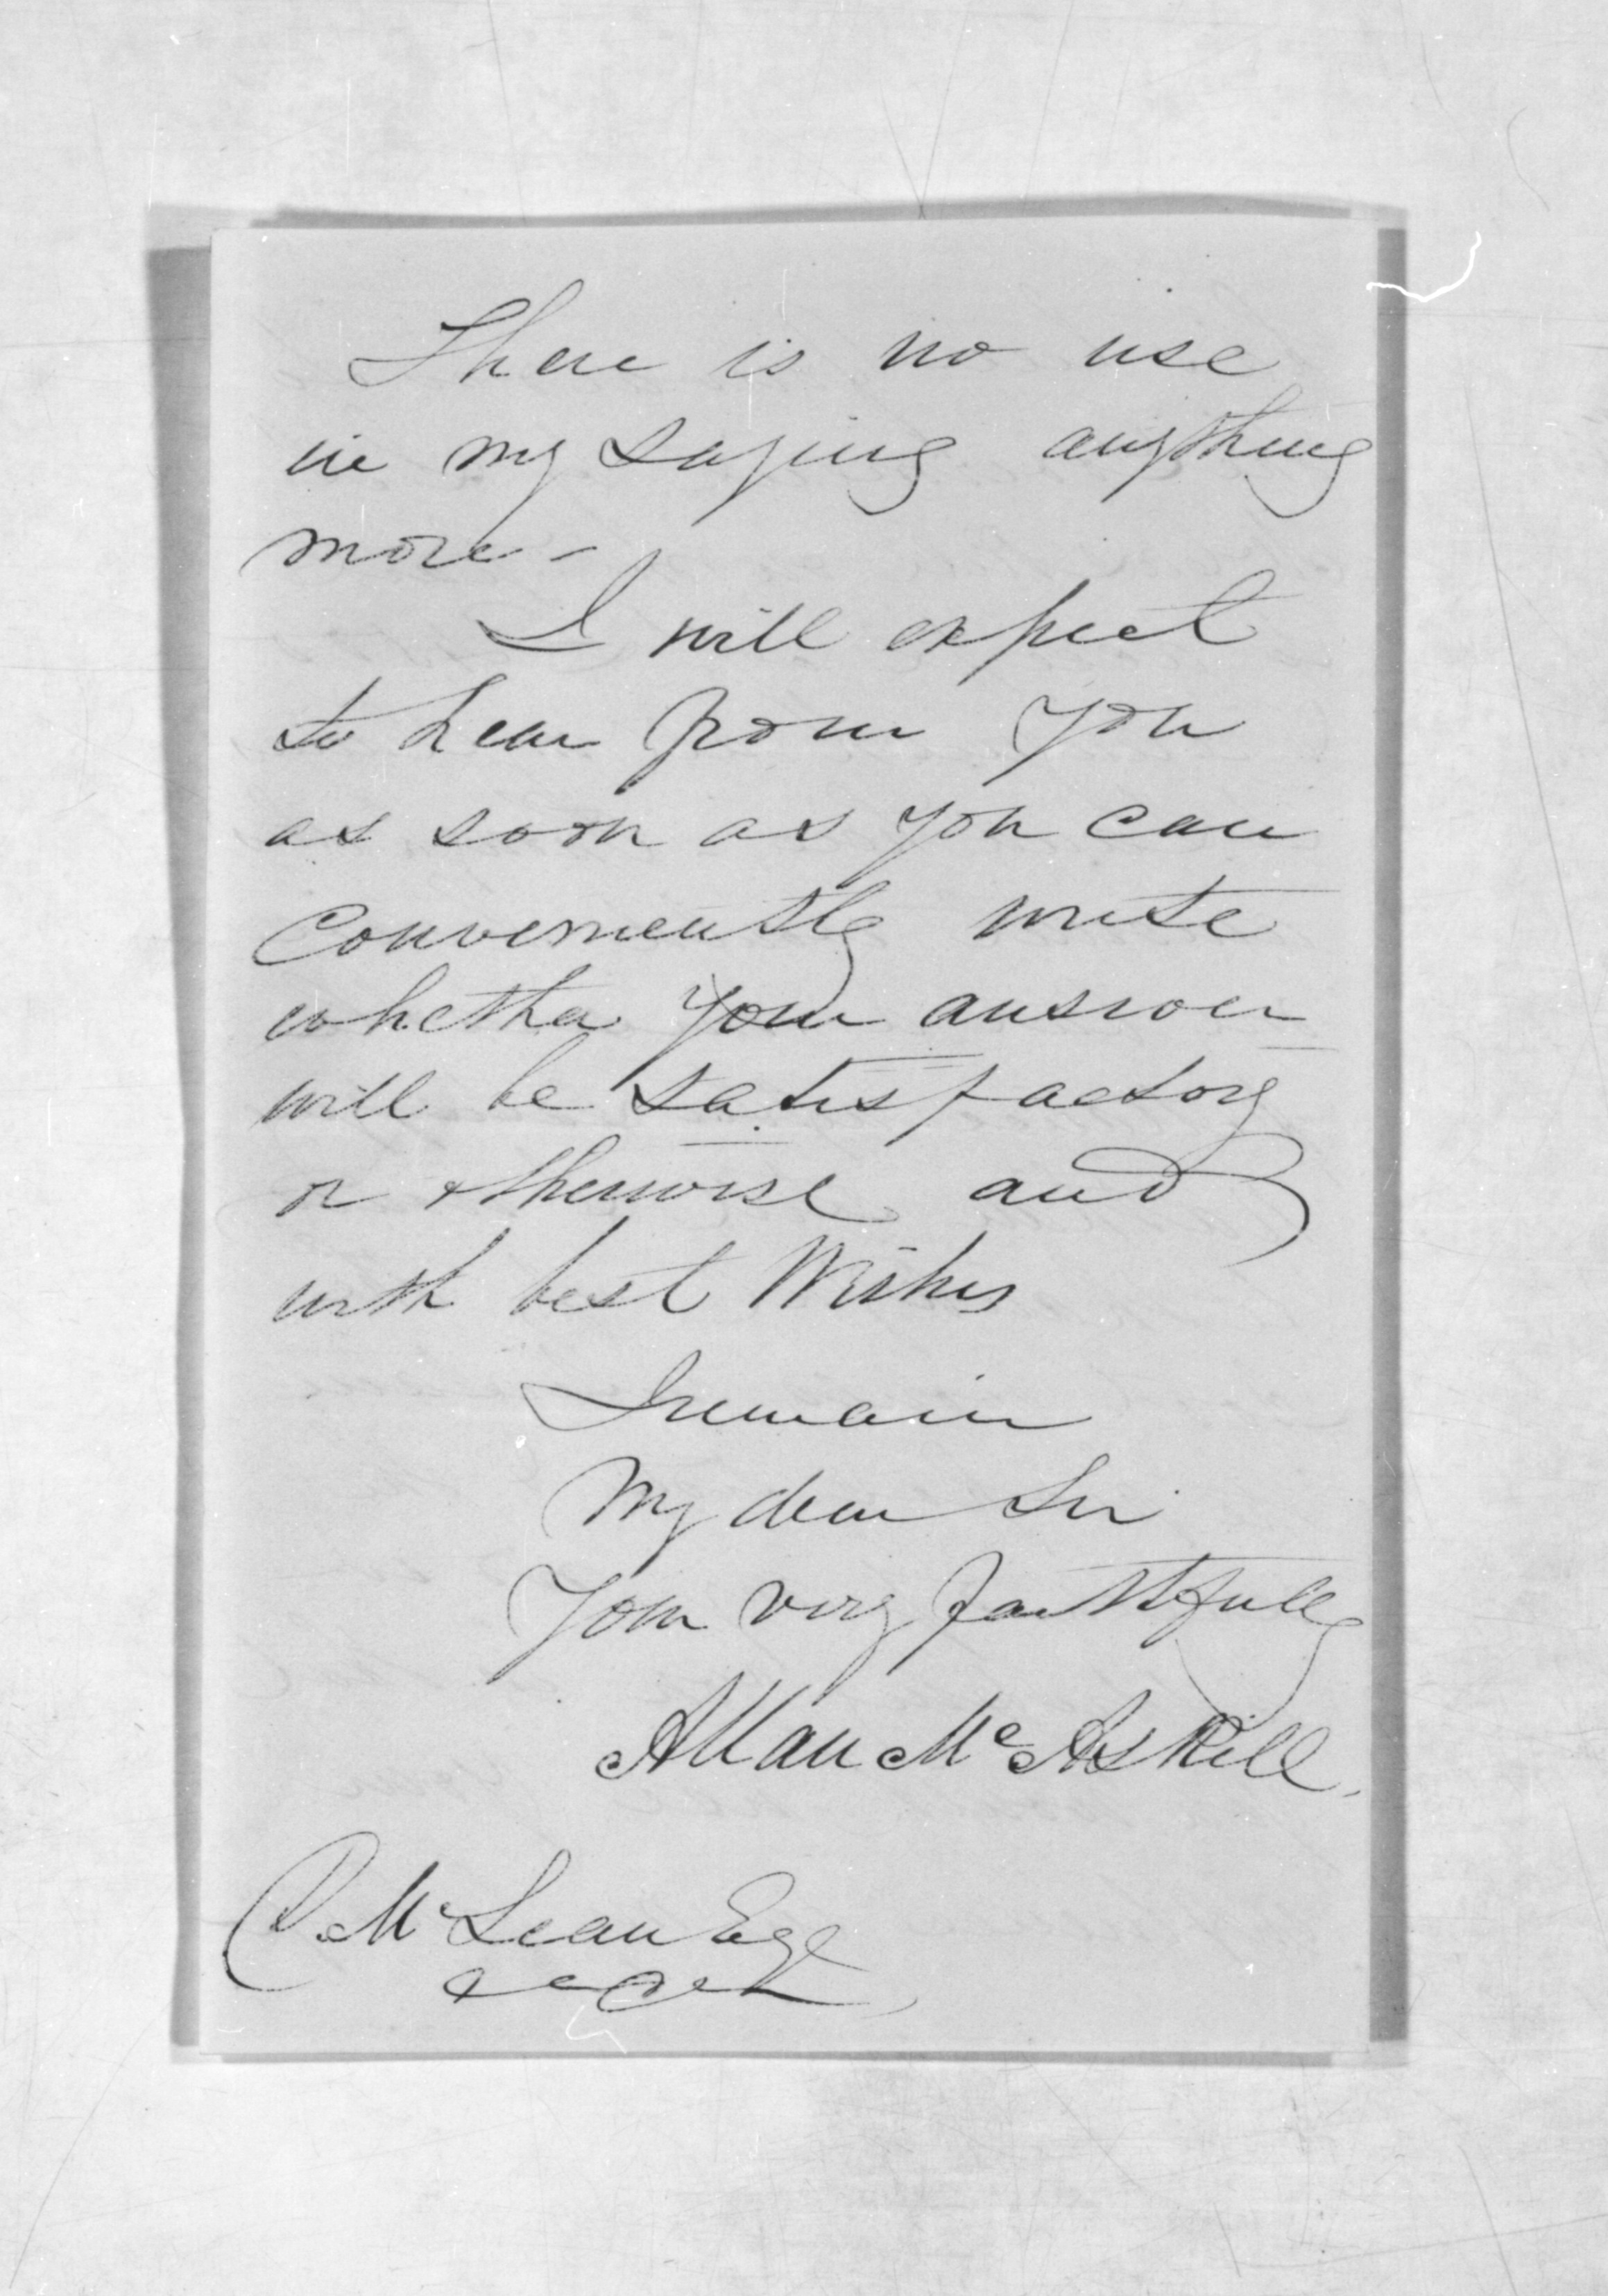 There is no use
in my saying anything
more -
I will expect
to hear from you
as soon as you can
conveniently write
whether your answer
will be satisfactory
or otherwise and
with best Wishes
I remain
My dear Sir
Your very faithfully
Allan McAskill.
D. McLean Esq